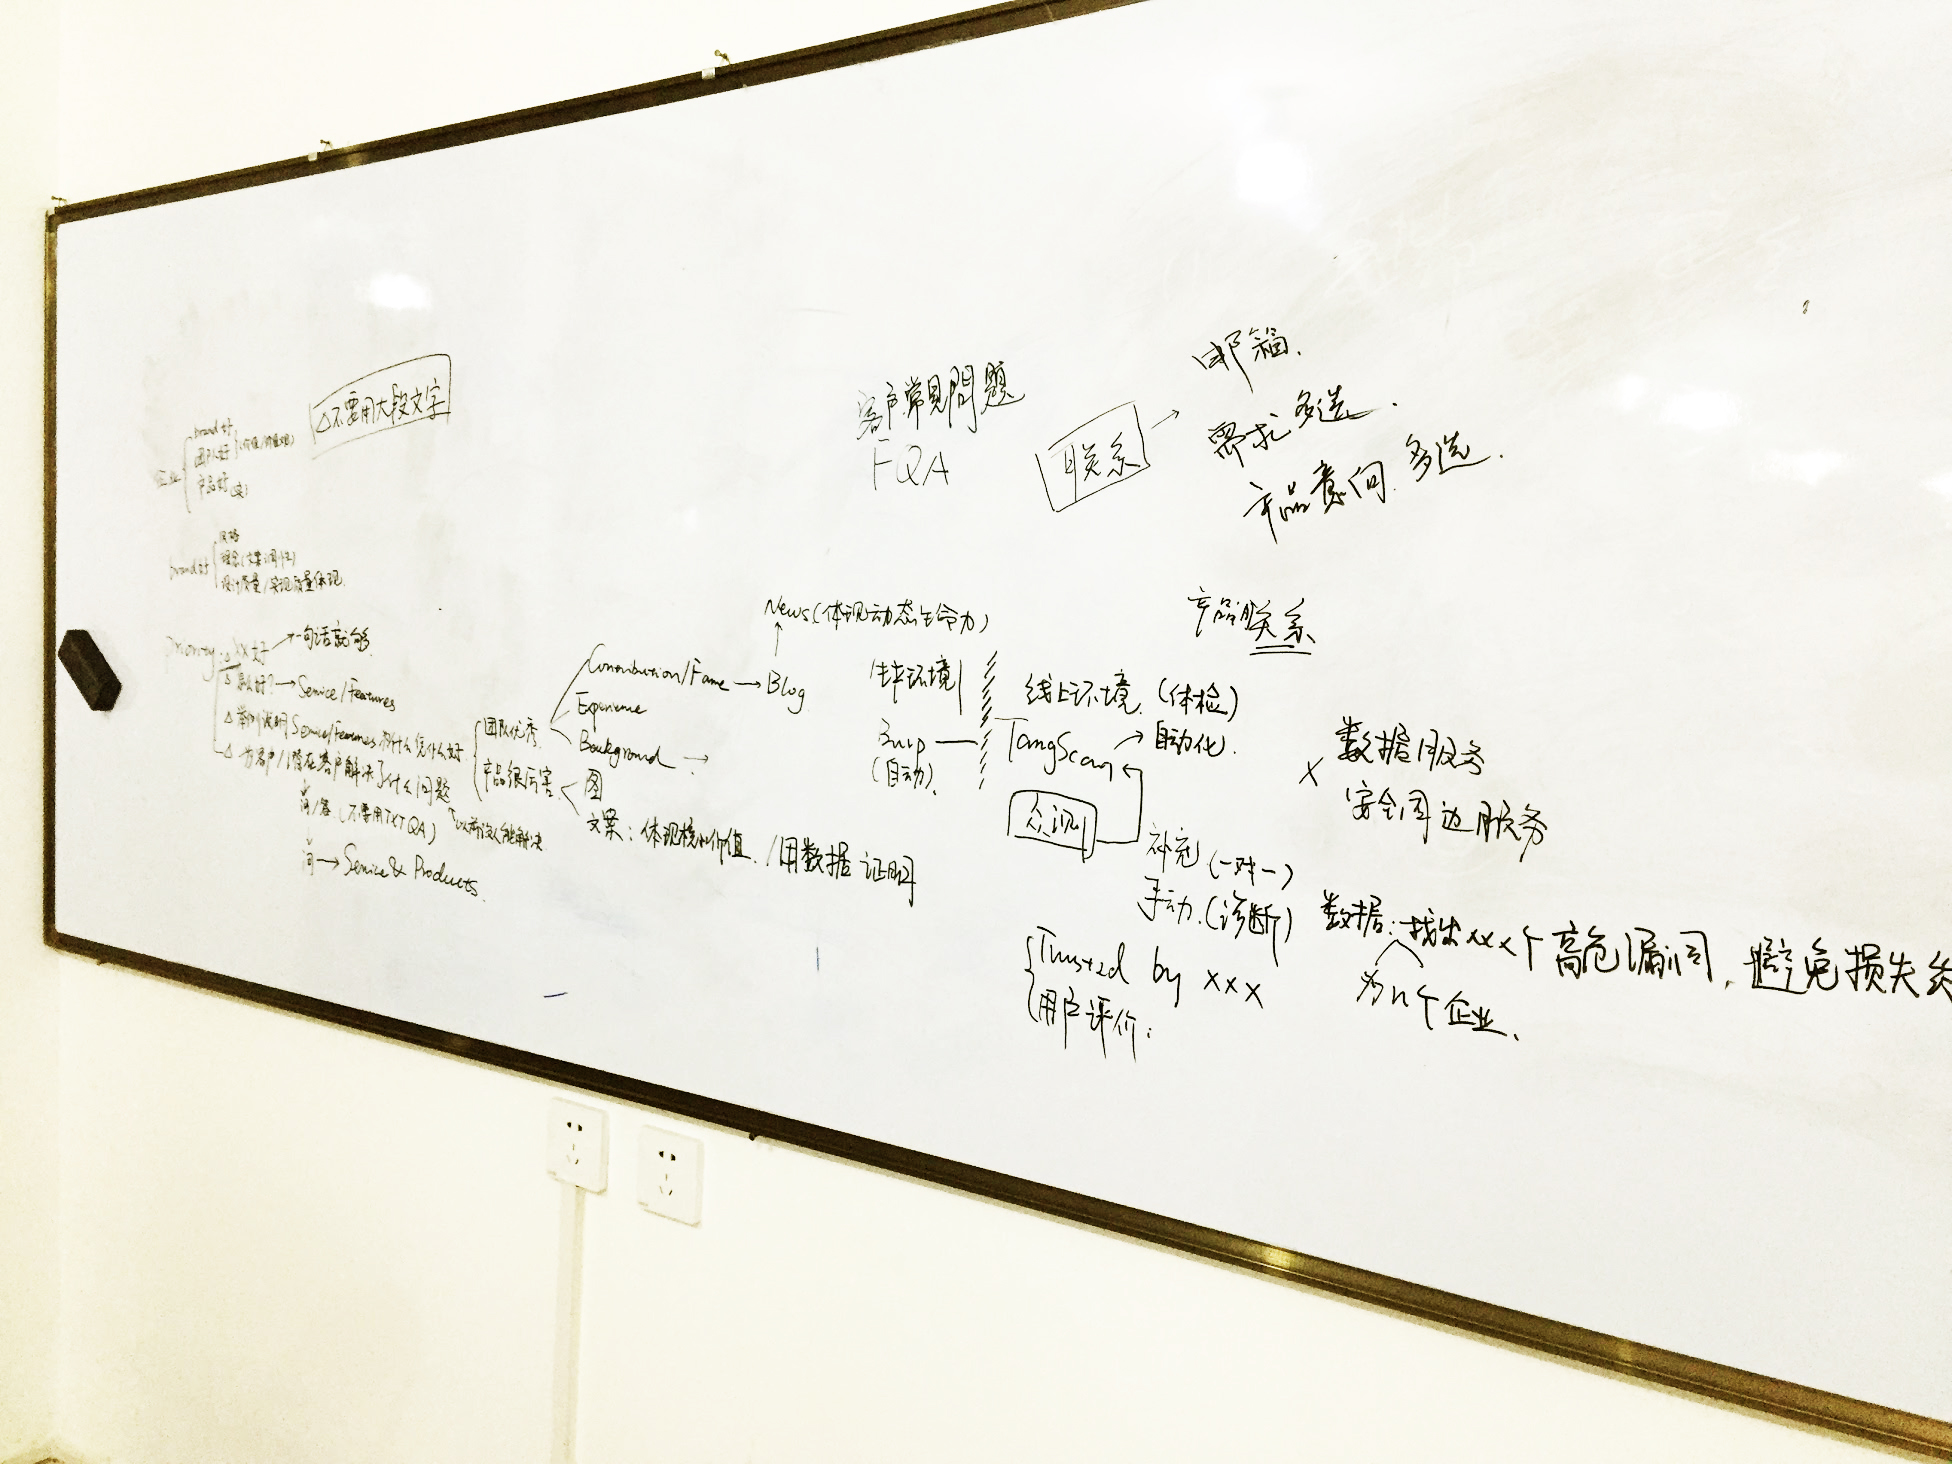 △不要用大段文字
企业
brand好
团队好
产品好
brand好
风格
设计质量/实现质量体现
Priority
△ XX好 → 一句话就够
△ 怎么好? → Service/Features
△ 举例说明Service/Features 什么好
△ 为客户/潜在客户解决了什么问题
问/答 (不要用TXT QA)
问 → Service & Products
团队优秀
产品很厉害
Contribution/Fame → Blog
News(体现动态生命力)
Experience
Background →
图
文案: 体现核心价值 /用数据证明
客户常见問題
FQA
联系 →
邮箱.
需求 多选.
产品意向 多选.
产品联系
环境
Burp
(自动).
线上环境. (体检)
TangScan → 自动化.
众测
补充 (一对一)
手动. (诊断)
x 数据服务
安全周边服务
Trusted by xxx
用户评价:
数据: 找出xxx个高危漏洞, 避免损失
为n个企业.